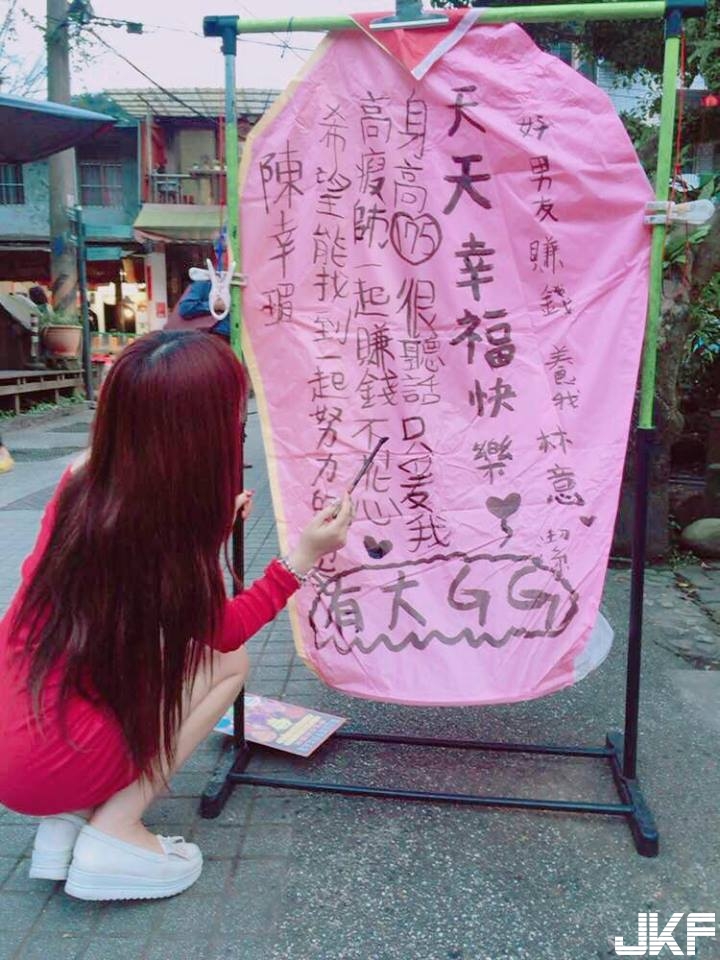 好男友賺錢 養我 林意
天天幸福快樂
身高175 很聽話 只愛我
高瘦帥一起賺錢不花心
希望能找到一起努力的
陳幸
有大GG
JKF